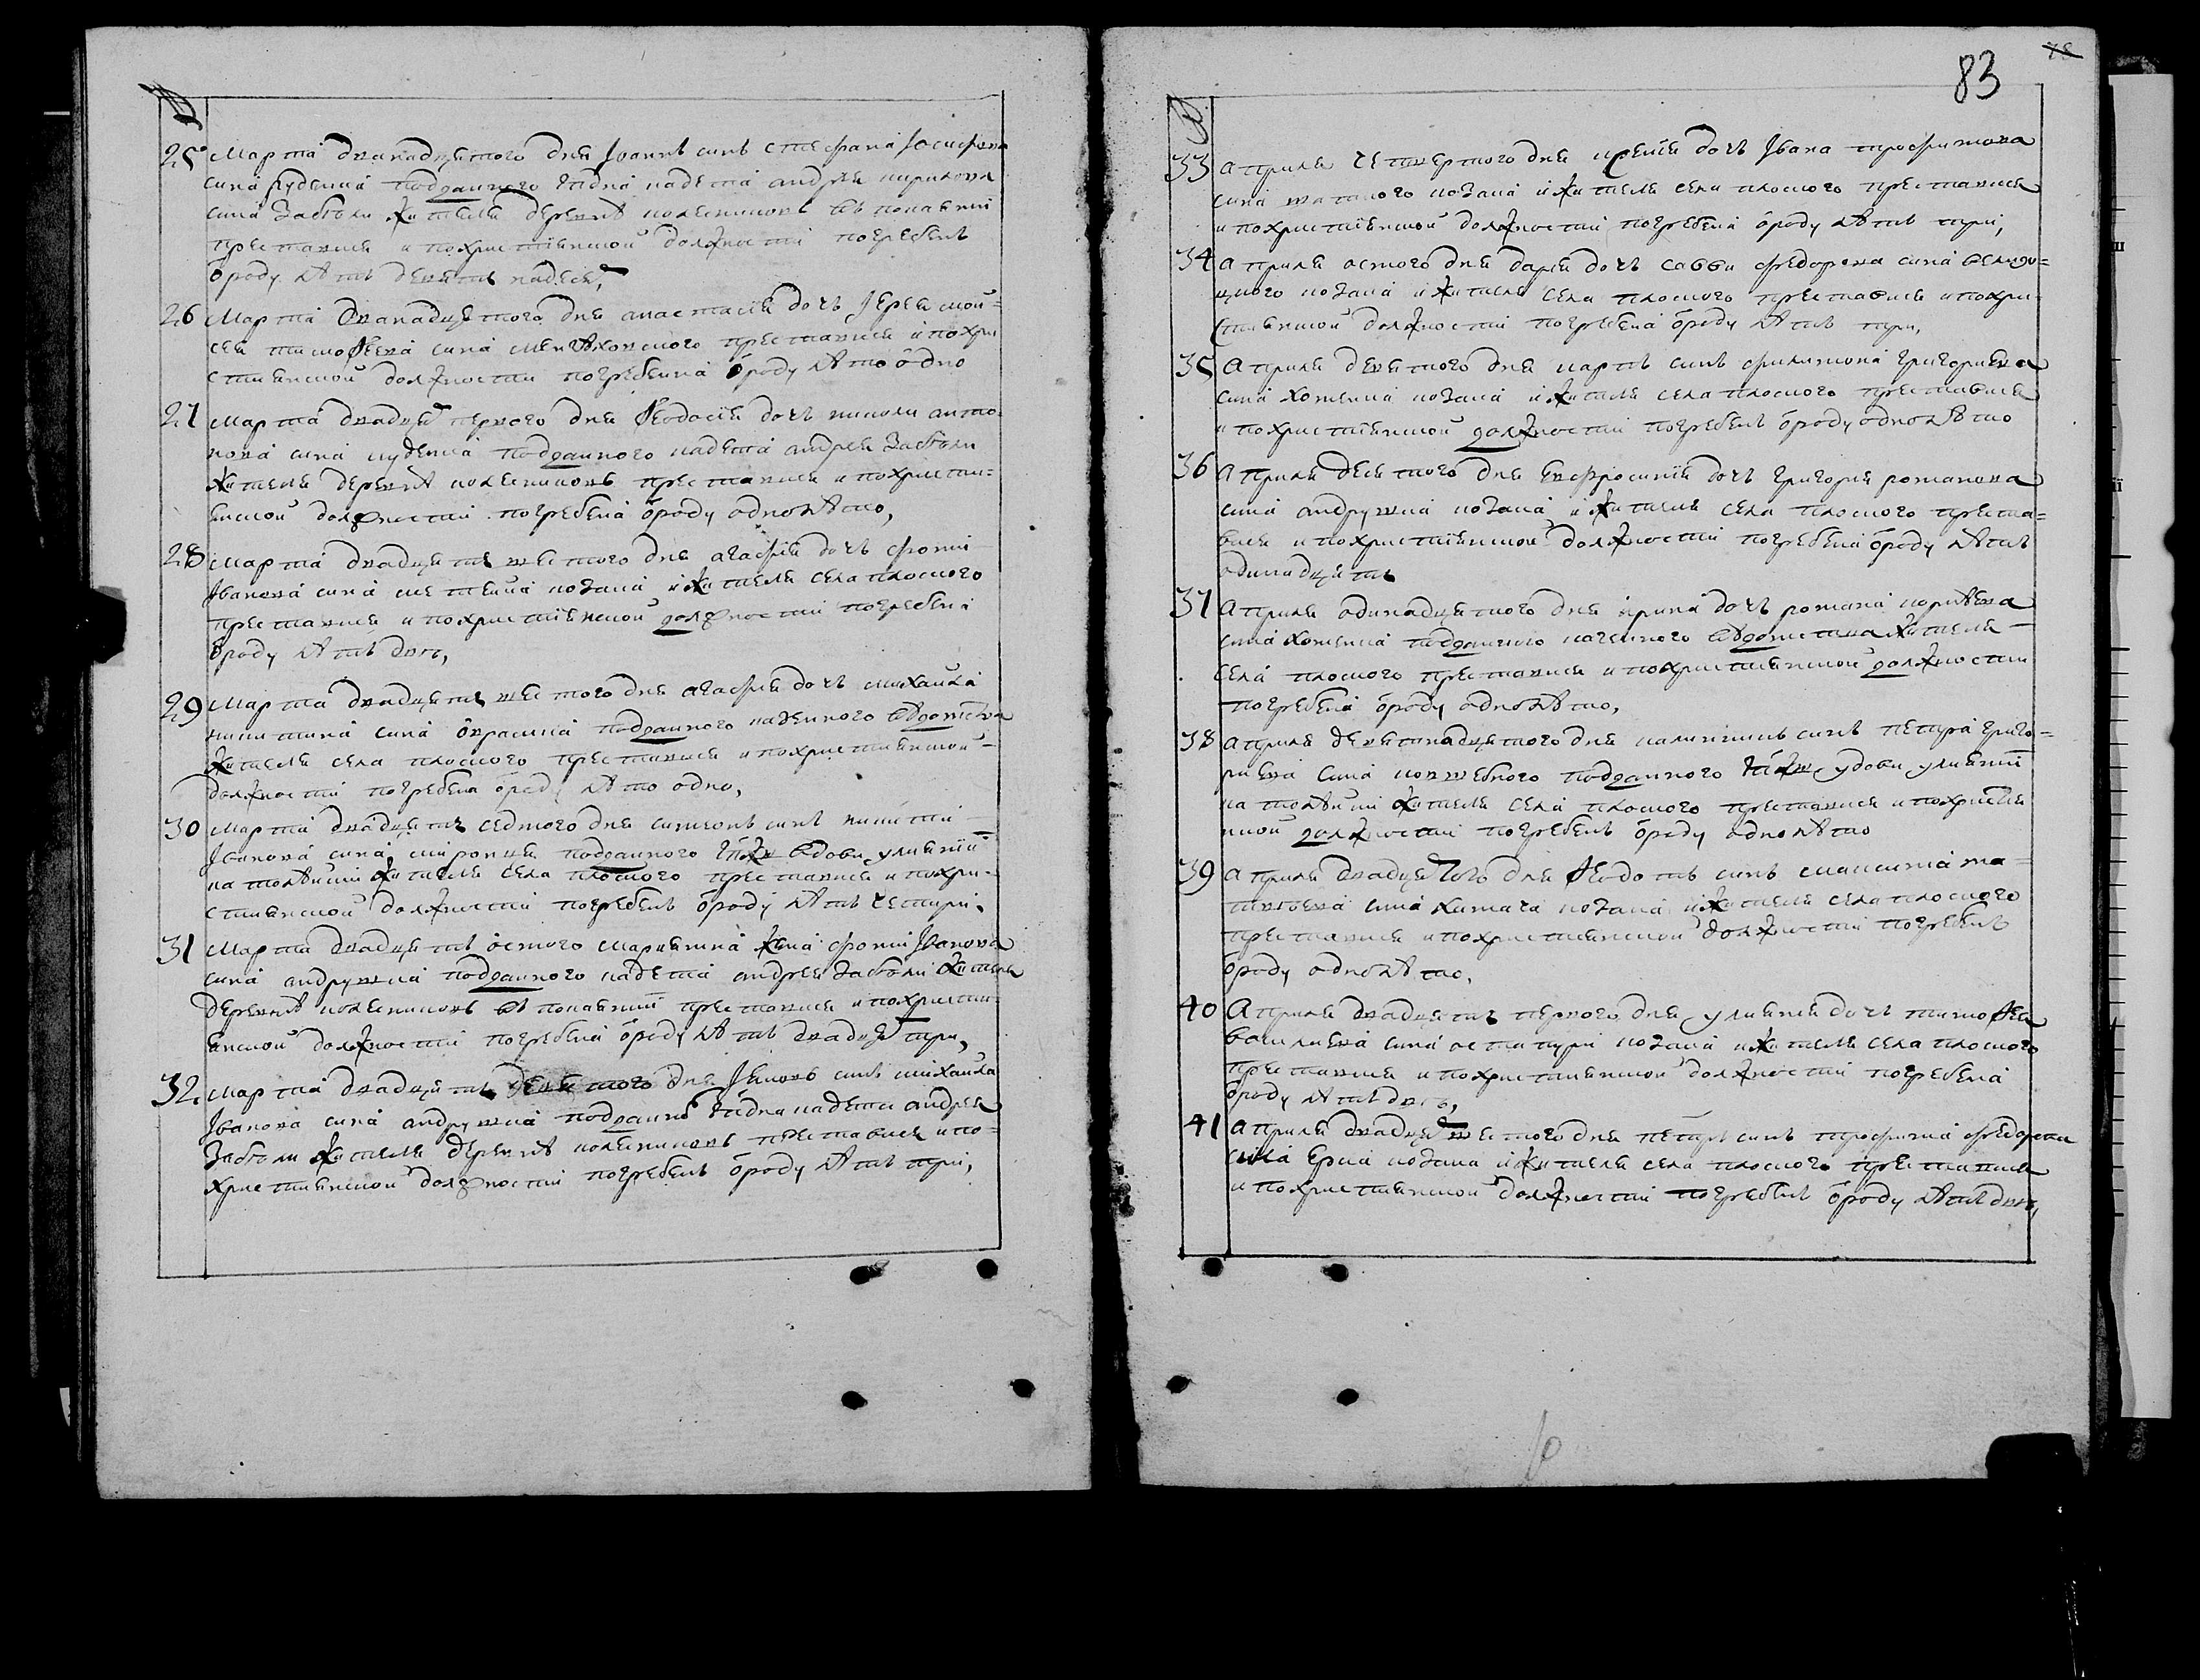 25 Марта дванадцятого дня Іоаннъ синъ Стефана Іосифова
сина Руденка подданного гпдна кадета андрея кирилова
сина Забѣли жителя деревнѣ колесниковъ въ покаянні
преставися и похристіянской должности погребенъ
ѡроду лѣтъ девятьнадеся,
26 Марта дванадцятого дня анастасія дочъ Іерея мой-
сея тимоѳеева сина преставися и похри
стиянской должности погребенна ѡроду лѣто одно
27 Марта двадця первого дня Ѳеодосія дочъ николи анто-
нова сина куденка подданного кадета андрея Забѣли
жителя деревнѣ колесниковъ преставися и похристи-
янской должности погребена ѡроду однолѣто,
28 Марта двадцять шестого дня агафія дочъ фоми
Іванова сина козака и жителя села плоского
преставися и похристіянской должности погребена
ѡроду лѣтъ двѣ,
29 Марта двадцять шестого дня агафия дочъ михайла
никитина сина подданного каженного вѣдомства
жителя села плоского преставися и похристиянской-
должности погребена ѡроду лѣто одно,
30 Марта двадцять седмого дня симеонъ синъ никити
Іванова сина миронця подданного гпжи вдови улиянїи
жителя села плоского преставися и похри-
стиянской должности погребенъ ѡроду лѣтъ четири,
31 Марта двадцять осмого мариянна жена фоми Іванова
сина андрушка подданного кадета андрея Забѣли жителя
деревнѣ колесниковъ въ покаянніи преставися и похристи-
янской должности погребена ѡроду лѣтъ двадця три,
32 Марта двадцять девятого дня Іяковъ синъ михайла
Іванова сина андрушка подданно гпдна кадета андрея
Забѣли жителя деревнѣ колесниковъ преставися и по-
християнской должности погребенъ ѡроду лѣтъ три,
83
33 априля четвертого дня ксенія дочъ Івана трофимова
сина козака и жителя села плоского преставися
и похристіянской должности погребена ѡроду лѣтъ три,
34 априля осмого дня дария дочъ савви федорова сина
козака и жителя села плоского преставися и похри-
стиянской должности погребена ѡроду лѣтъ три,
35 Априля девятого дня карпъ синъ филимона григориева
сина хоменка козака и жителя села плоского преставися
и похристіянской должности погребенъ ѡроду однолѣто
36 Априля десятого дня Евфросинїя дочъ григория романова
сина андрушка козака и жителя села плоского преста-
вися и похристіянской должности погребена ѡроду лѣтъ
одинадцять
37 Априля одинадцятого дня ірина дочъ романа корнѣева
сина хоменка подданного каженного вѣдомства жителя-
села плоского преставися и похристиянской должности
погребена ѡроду однолѣто,
38 априля девятнадцятого дня калинникъ синъ петра григо-
риева сина подданного гпжи удови улиянїи
жителя села плоского преставися и похристия
нской должности погребенъ ѡроду однолѣто
39 априля двадцятого дня Ѳеодотъ синъ максима ма-
твѣева сина козака и жителя села плоского
преставися и похристиянской должности погребенъ
ѡроду однолѣто,
40 Априля двадцять первого дня улияния дочъ тимоѳея
василиева сина козака и жителя села плоского
преставися и похристиянской должности погребена
ѡроду лѣтъ двѣ,
41 Априля двадця шестого дня петръ синъ трофима федорова
сина козака и жителя села плоского преставися
и похристиянской должности погребенъ ѡроду лѣтъ двѣ,